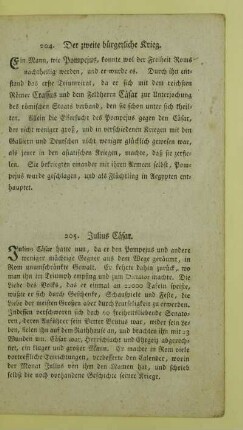 204. Der zweite bürgerliche Krieg.
Ein Mann, wie Pompejus, konnte wol der Freiheit Roms
nachtheilig werden, und er wurde es. Durch ihn ent-
stand das erste Triumvirat, da er sich mit dem reichsten
Römer Crassus und dem Feldherrn Cäsar zur Unterjochung
des römischen Staats verband, den sie schon unter sich theil-
ten. Allein die Eifersucht des Pompejus gegen den Cäsar, der
nicht weniger groß, und in verschiedenen Kriegen mit den
Galliern und Deutschen nicht weniger glücklich gewesen war,
als jener in den asiatischen Kriegen, machte, daß sie zerfie-
len. Sie bekriegten einander mit ihren Armeen selbst, Pom-
pejus wurde geschlagen, und als Flüchtling in Aegypten ent-
hauptet.
205. Julius Cäsar.
Julius Cäsar hatte nun, da er den Pompejus und andere
weniger mächtige Gegner aus dem Wege geräumt, in
Rom unumschränkte Gewalt. Er kehrte dahin zurück, wo
man ihn im Triumph empfing und zum Dictator machte. Die
Liebe des Volks, das er einmal an 22000 Tafeln speiste,
wußte er sich durch Gastgebote, Schauspiele und Feste, die
Liebe der weisen Großen aber durch Leutseligkeit zu erwerben.
Indessen verschworen sich doch 60 freiheitliebende Senato-
ren, deren Anführer sein Vetter Brutus war, wider sein Le-
ben, fielen ihn auf dem Rathhause an, und brachten ihn mit 23
Wunden um. Cäsar war, Herrschsucht und Ehrgeiz abgerech-
net, ein kluger und großer Mann. Er machte in Rom viele
vortreffliche Einrichtungen, verbesserte den Calender, worin
der Monat Julius von ihm den Namen hat, und schrieb
selbst die noch vorhandene Geschichte seiner Kriege.